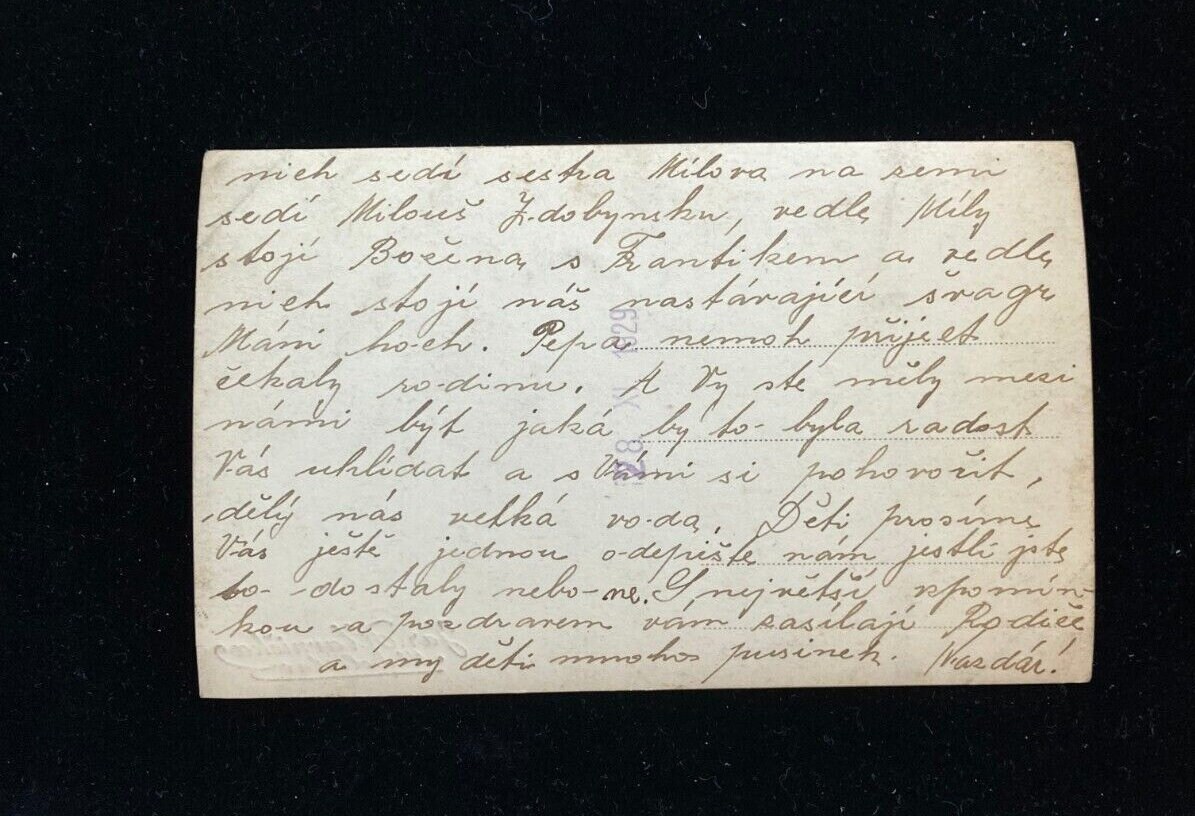 nich sedí sestra Mílova na zemi
sedí Milouš Z-dobynsku, vedle Míly
stojí Božena s Frantíkem a vedle
nich stojí náš nastávající švagr
Máni hoch. Pepa nemoh přijet
čekaly ro-dinu. A Vy ste měly mezi
námi být jaká by to- byla radost
Vás uhlídat a s Vámi si pohovořit,
dělý nás velká vo-da. Děti prosíme
Vás ještě jednou o-depište nám jestli jste
to- dostaly nebo- ne. S největší vpomín-
kou a pozdravem vám zasílají Rodiče
a my děti mnoho pusinek. Nazdár!
28 XI 1929